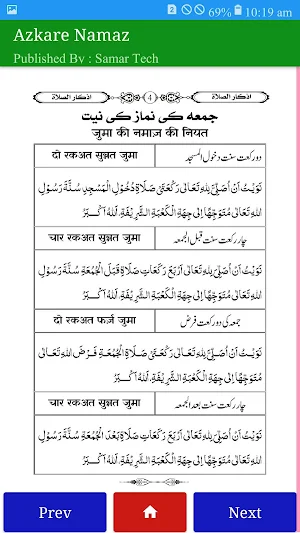 69% 10:19 am
Azkare Namaz
Published By : Samar Tech
اذکار الصلاة 4 اذکار الصلاة
جمعہ کی نماز کی نیت
जुमा की नमाज़ की नियत
दो रकअत सुन्नत जुमा دورکعت سنت دخول المسجد
نَوَيْتُ اَنْ اُصَلِّىَ لِلّٰهِ تَعَالٰى رَكْعَتَىْ صَلَاةِ دُخُوْلِ الْمَسْجِدِ سُنَّةَ رَسُوْلِ
اللهِ تَعَالٰى مُتَوَجِّهًا اِلٰى جِهَةِ الْكَعْبَةِ الشَّرِيْفَةِ، اَللهُ اَكْبَرُ
चार रकअत सुन्नत जुमा چار رکعت سنت قبل الجمعہ
نَوَيْتُ اَنْ اُصَلِّىَ لِلّٰهِ تَعَالٰى اَرْبَعَ رَكَعَاتِ صَلَاةِ قَبْلَ الْجُمُعَةِ سُنَّةَ رَسُوْلِ
اللهِ تَعَالٰى مُتَوَجِّهًا اِلٰى جِهَةِ الْكَعْبَةِ الشَّرِيْفَةِ، اَللهُ اَكْبَرُ
दो रकअत फर्ज़ जुमा جمعہ کی دورکعت فرض
نَوَيْتُ اَنْ اُصَلِّىَ لِلّٰهِ تَعَالٰى رَكْعَتَىْ صَلَاةِ الْجُمُعَةِ فَرْضَ اللهِ تَعَالٰى
مُتَوَجِّهًا اِلٰى جِهَةِ الْكَعْبَةِ الشَّرِيْفَةِ، اَللهُ اَكْبَرُ
चार रकअत सुन्नत जुमा چار رکعت سنت بعد الجمعہ
نَوَيْتُ اَنْ اُصَلِّىَ لِلّٰهِ تَعَالٰى اَرْبَعَ رَكَعَاتِ صَلَاةِ بَعْدَ الْجُمُعَةِ سُنَّةَ رَسُوْلِ
اللهِ تَعَالٰى مُتَوَجِّهًا اِلٰى جِهَةِ الْكَعْبَةِ الشَّرِيْفَةِ، اَللهُ اَكْبَرُ
Prev Next